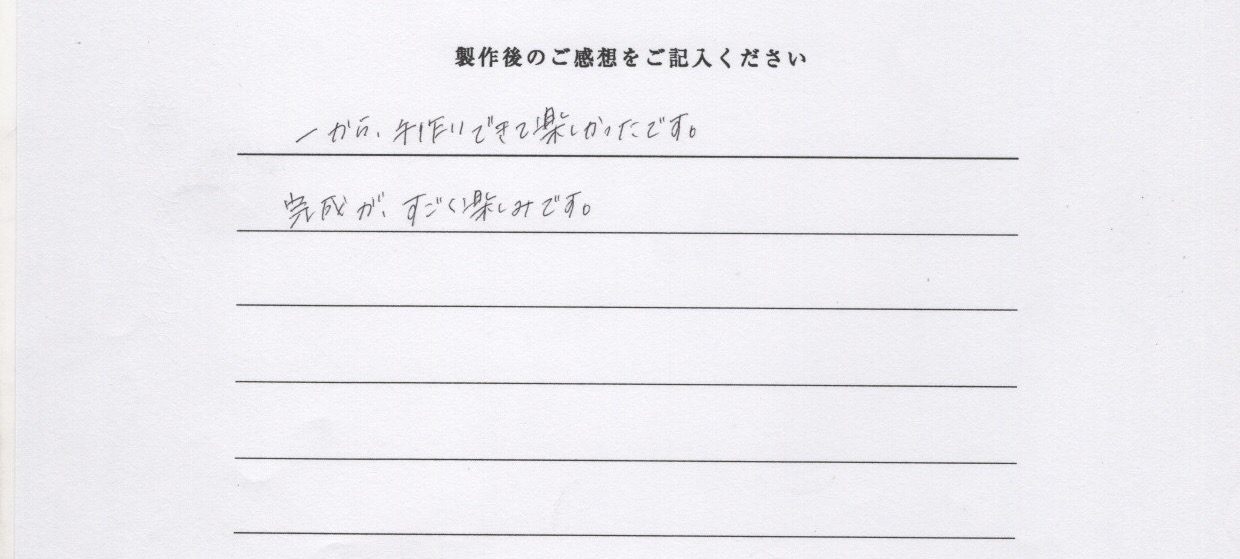 製作後のご感想をご記入ください
一から、手作りできて楽しかったです。
完成が、すごく楽しみです。